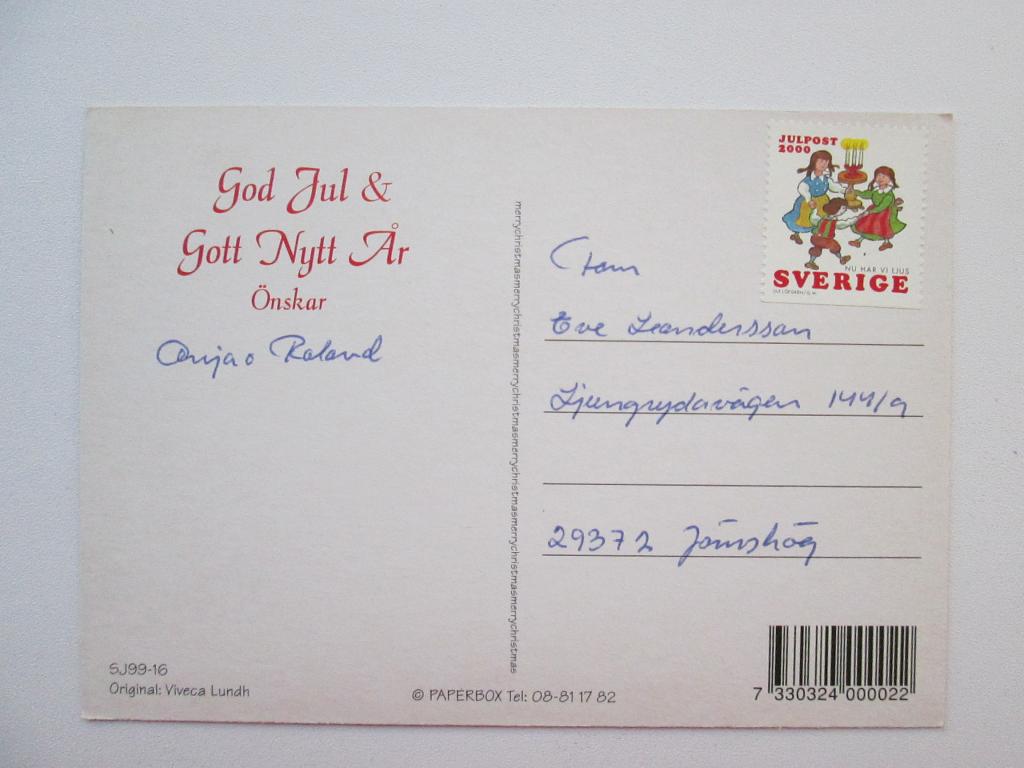 God Jul &
Gott Nytt År
Önskar
Anja o Roland
merrychristmasmerrychristmasmerrychristmasmerrychristmasmerrychristmasmerrychristmasmerrychristmas
JULPOST
2000
NU HAR VI LJUS
SVERIGE
Fam
Eve Leanderssan
Ljungrydavägen 144/9
29372 Jämshög
SJ99-16
Original: Viveca Lundh
© PAPERBOX Tel: 08-81 17 82
7 330324 000022